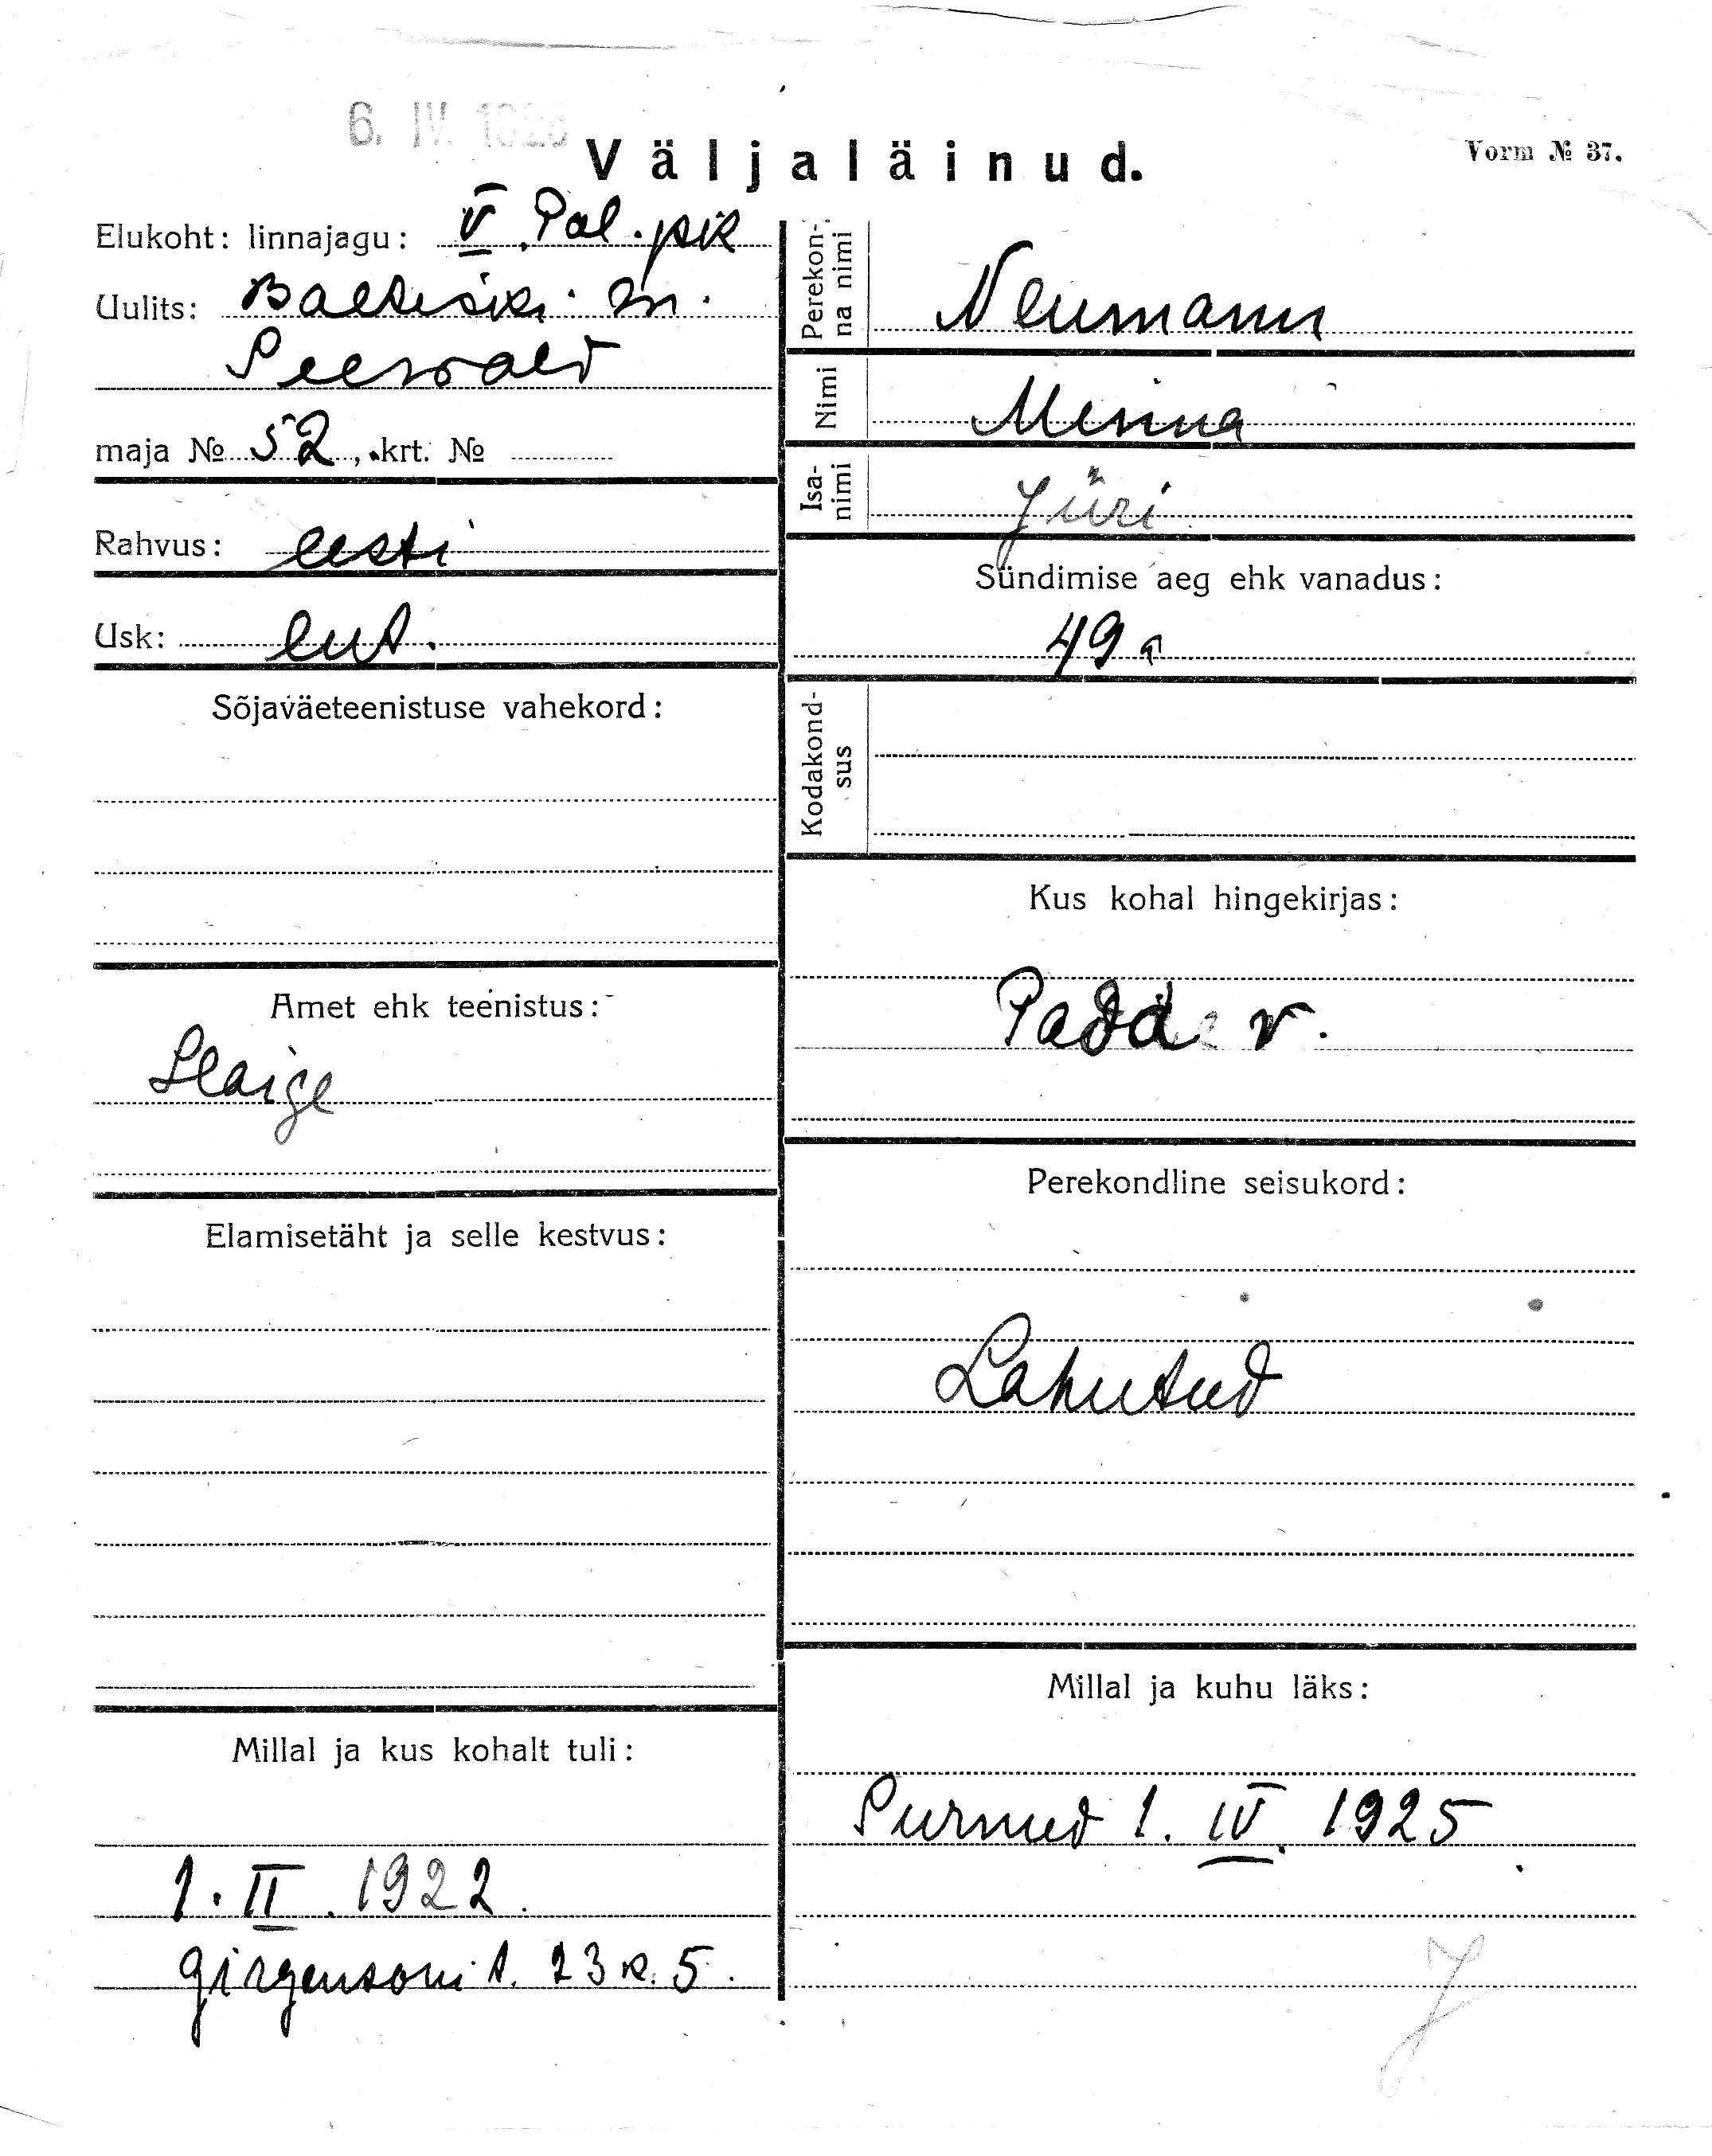 6. IV. 192
Väljaläinud.
Vorm № 37.
Elukoht: linnajagu: V. Pol. pk
Uulits: Baltiski m.
Seewald
maja № 52, krt. №
Rahvus: eesti
Usk: lut.
Sõjaväeteenistuse vahekord:
Amet ehk teenistus:
Haige
Elamisetäht ja selle kestvus:
Millal ja kus kohalt tuli:
1. II. 1922.
Girgensoni t. 23 k. 5.
Perekon-
na nimi
Neumann
Nimi
Minna
Isa-
nimi
Jüri
Sündimise aeg ehk vanadus:
49 a
Kodakond-
sus
Kus kohal hingekirjas:
Pada v.
Perekondline seisukord:
Lahutud
Millal ja kuhu läks:
Surnud 1. IV. 1925